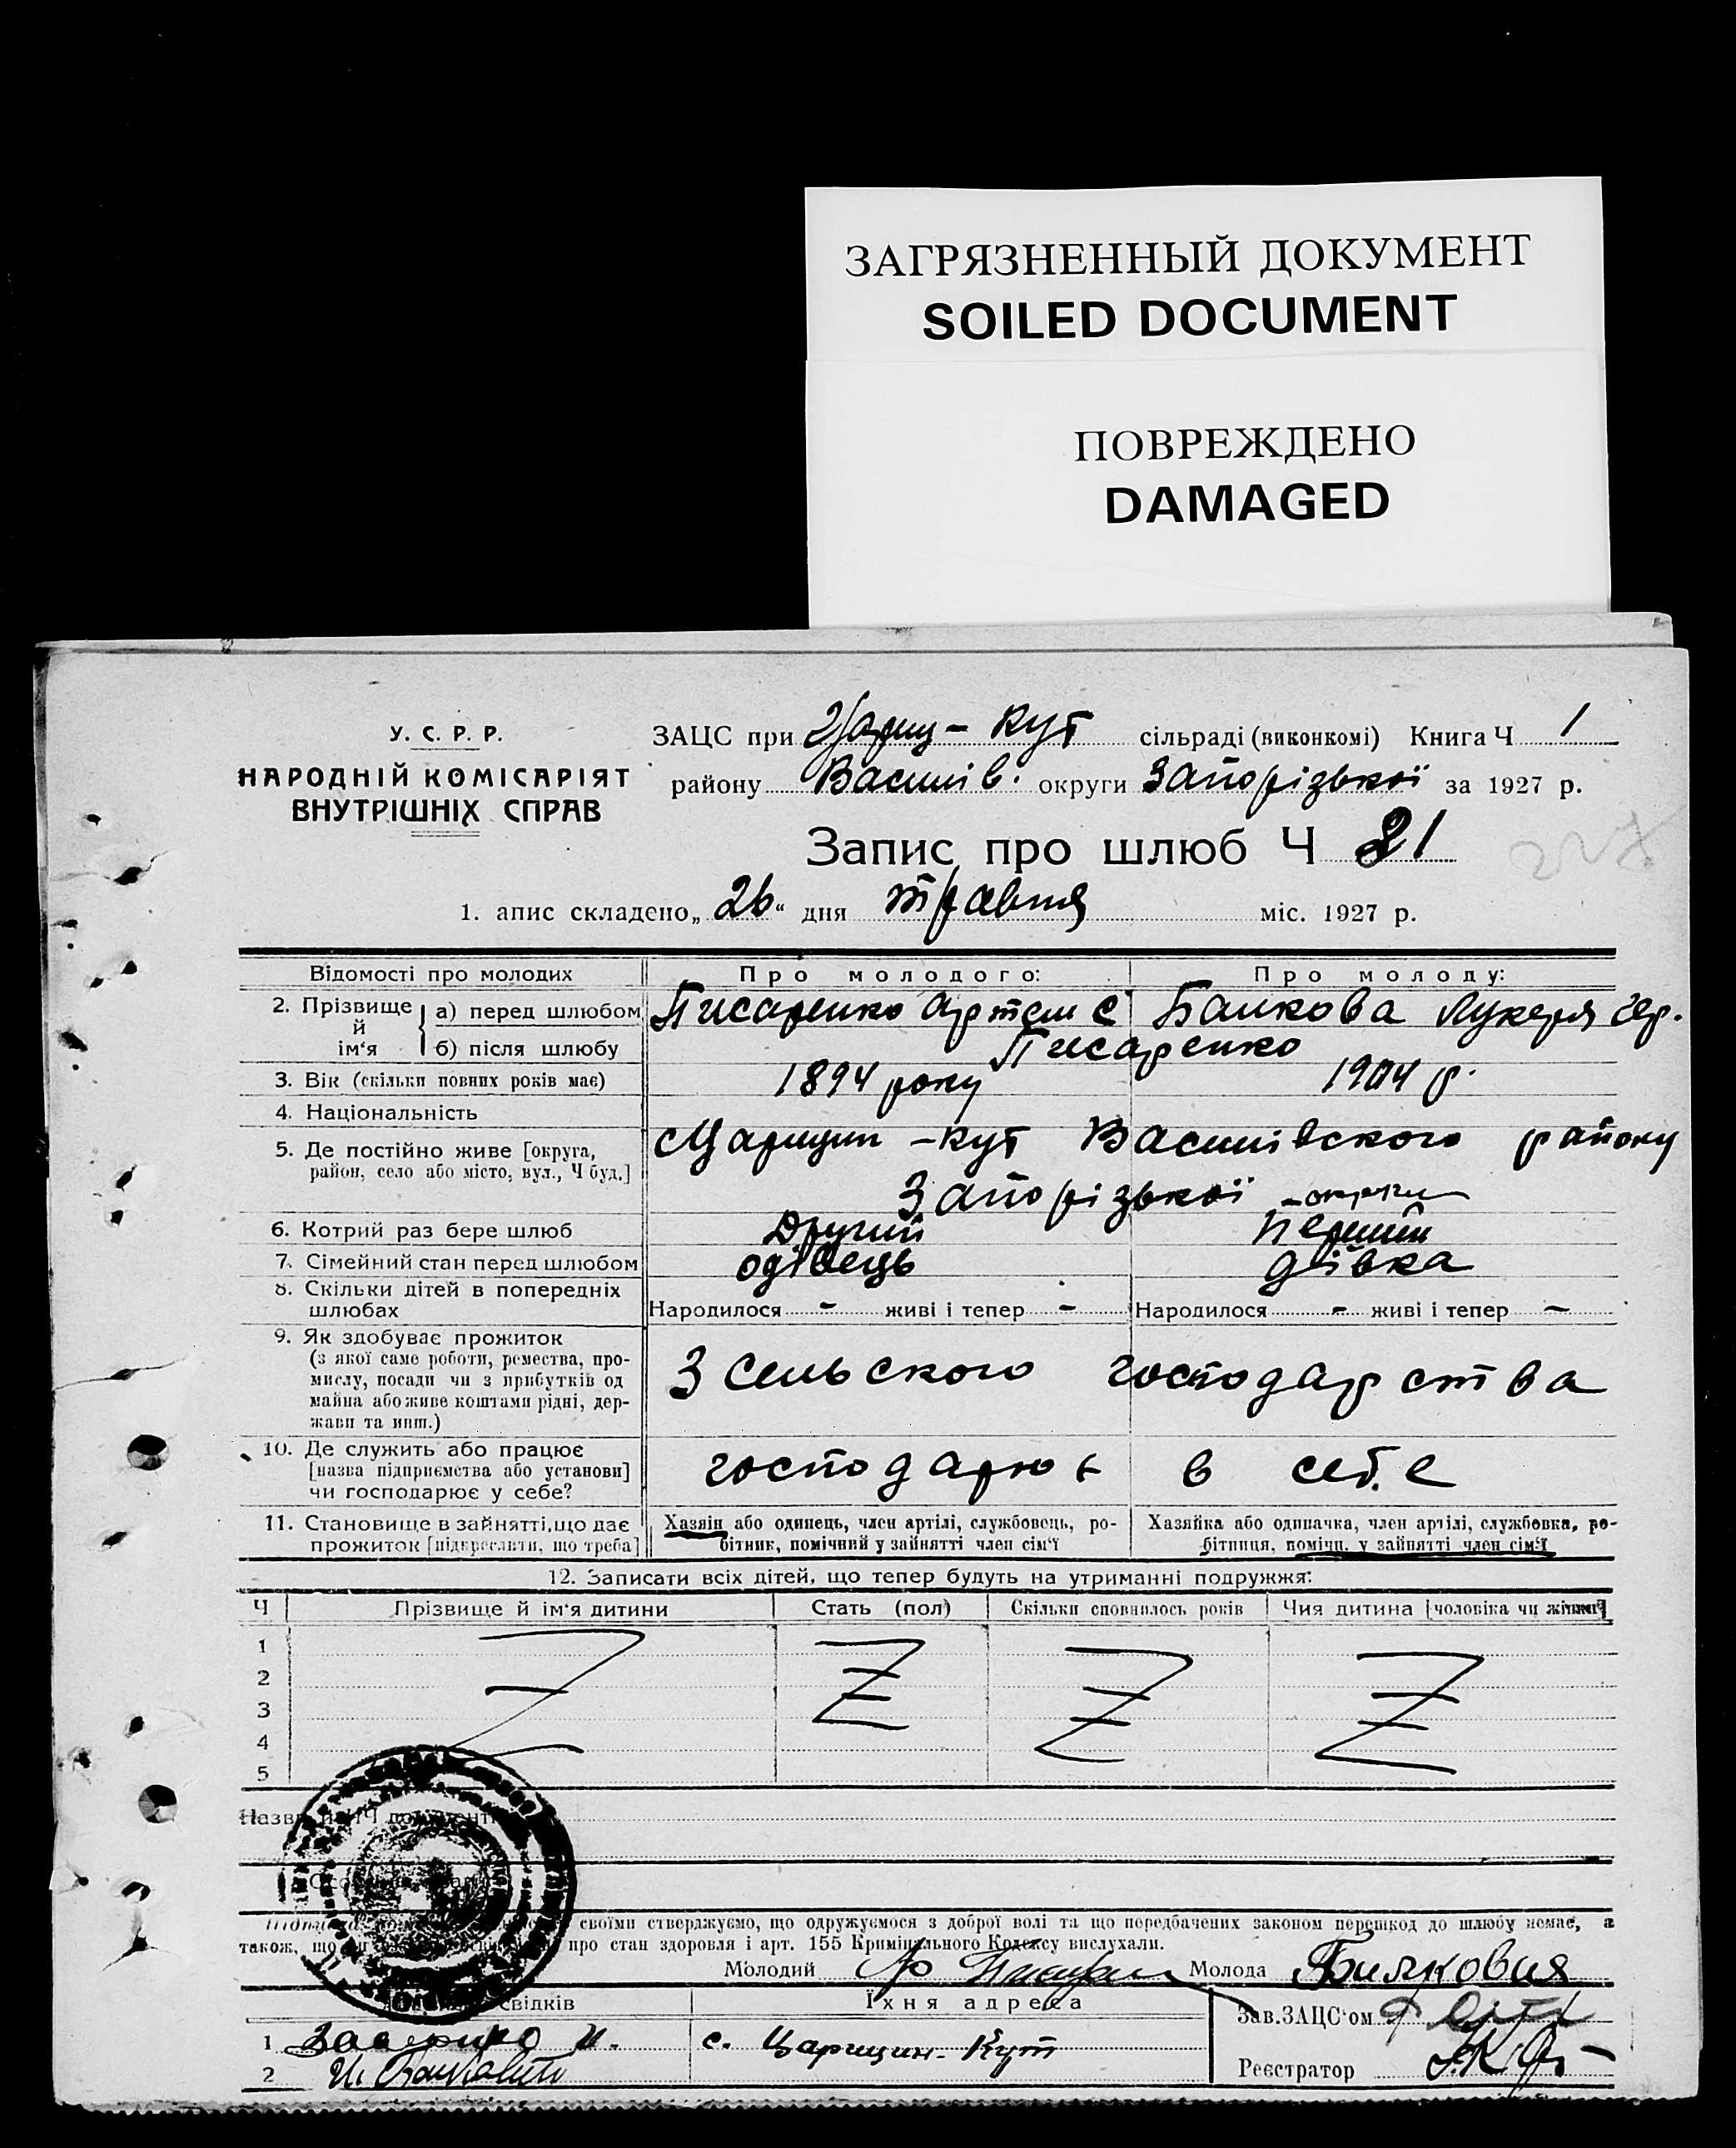 ЗАГРЯЗНЕННЫЙ ДОКУМЕНТ
SOILED DOCUMENT
ПОВРЕЖДЕНО
DAMAGED
У. С. Р. Р.
НАРОДНІЙ КОМІСАРІЯТ
ВНУТРІШНІХ СПРАВ
ЗАЦС при Цариц-Кут сільраді (виконкомі) Книга Ч 1
району Василів. округи Запорізької за 1927 р.
Запис про шлюб Ч 21
227
1. апис складено „26“ дня травня міс. 1927 р.
Відомості про молодих Про молодого: Про молоду:
2. Прізвище й ім‘я а) перед шлюбом Писаренко Артем С Балкова Лукеря Гер.
б) після шлюбу Писаренко
3. Вік (скільки повних років має) 1894 року 1904 р.
4. Національність
5. Де постійно живе [округа, Царицин-кут Василівского району
район, село або місто, вул., Ч буд.]
Запорізької округи
6. Котрий раз бере шлюб Другий Перший
7. Сімейний стан перед шлюбом одівець дівка
8. Скільки дітей в попередніх
шлюбах Народилося - живі і тепер - Народилося - живі і тепер -
9. Як здобуває прожиток
(з якої саме роботи, ремества, про-
мислу, посади чи з прибутків од З сельского господарства
майна або живе коштами рідні, дер-
жави та инш.)
10. Де служить або працює
[назва підприємства або установи] господарює в себе
чи господарює у себе?
11. Становище в зайнятті, що дає Хазяїн або одинець, член артілі, службовець, ро- Хазяйка або одиначка, член артілі, службовка, ро-
прожиток [підкреслити, що треба] бітник, помічний у зайнятті член сім‘ї бітниця, помічн. у зайнятті член сім‘ї
12. Записати всіх дітей, що тепер будуть на утриманні подружжя:
Ч Прізвище й ім‘я дитини Стать (пол) Скільки сповнилось років Чия дитина [чоловіка чи жінки]
1
2
3
4
5
Назв
своїми стверджуємо, що одружуємося з доброї волі та що передбачених законом перешкод до шлюбу немає, а
також, що про стан здоровля і арт. 155 Кримінального Кодексу вислухали.
Молодий Ар Писарен Молода Балковая
свідків Їхня адреса Зав. ЗАЦС‘ом
1 И. с. Царицин-Кут
2 И. Реєстратор